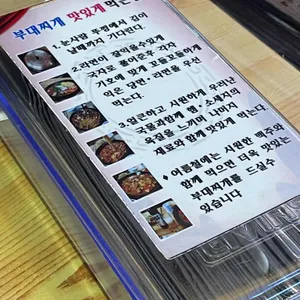 부대찌개 맛있게 먹는
1. 눈사람 뚜껑에서 김이
날때까지 기다린다.
2. 라면이 끓어올수있게
국자로 풀어준후 각자
기호에 맞게 꼬들꼬들하게
익은 당면·라면을 우선
먹는다.
3. 얼큰하고 시원하게 우러난
국물과함께 햄·소세지의
육질을 느끼며 나머지
재료와 함께 맛있게 먹는다.
♦ 여름철에는 시원한 맥주와
함께 먹으면 더욱 맛있는
부대찌개를 드실수
있습니다